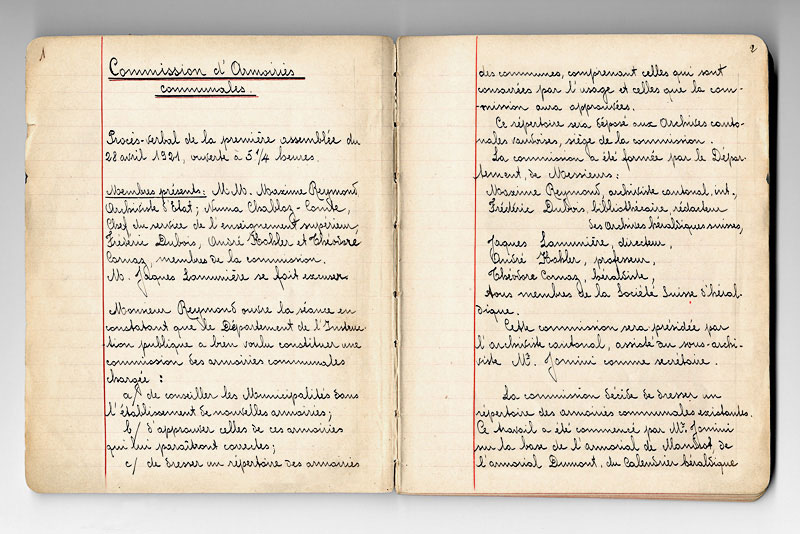 1
Commission d'Armoiries
communales.
Procès-verbal de la première assemblée du
28 avril 1921, ouverte à 5 1/4 heures.
Membres présents: M.M. Maxime Reymond,
Archiviste d'Etat; Numa Chabloz-Comte,
Chef du service de l'enseignement supérieur,
Frédéric Dubois, André Kohler et Théodore
Cornaz, membres de la commission.
M. Jaques Lamunière se fait excuser.
Monsieur Reymond ouvre la séance en
constatant que le Département de l'Instruc-
tion publique a bien voulu constituer une
commission des armoiries communales
chargée :
a/ de conseiller les Municipalités dans
l'établissement de nouvelles armoiries;
b/ d'approuver celles de ces armoiries
qui lui paraîtront correctes;
c/ de dresser un répertoire des armoiries
2
des communes, comprenant celles qui sont
consacrées par l'usage et celles que la com-
mission aura approuvées.
Ce répertoire sera déposé aux Archives canto-
nales vaudoises, siège de la commission.
La commission a été formée par le Dépar-
tement, de Messieurs:
Maxime Reymond, archiviste cantonal, int.,
Frédéric Dubois, bibliothécaire, rédacteur
des Archives héraldiques suisses,
Jaques Lamunière, directeur,
André Kohler, professeur,
Théodore Cornaz, héraldiste,
tous membres de la Société Suisse d'héral-
dique.
Cette commission sera présidée par
l'archiviste cantonal, assisté du sous-archi-
viste Mr. Jomini comme secrétaire.
La commission décide de dresser un
répertoire des armoiries communales existantes.
Ce travail a été commencé par Mr. Jomini
sur la base de l'armorial de Mandrot, de
l'armorial Dumont, du Calendrier héraldique